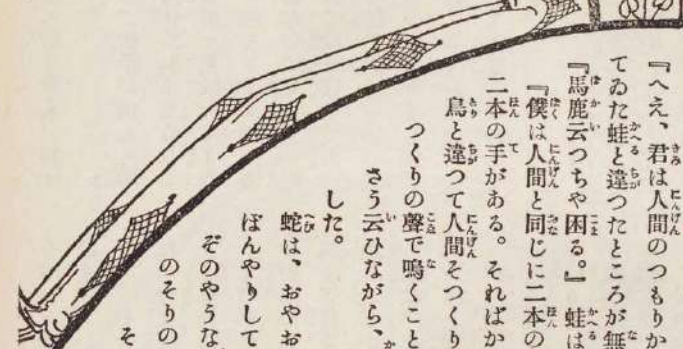 『へえ、君は人間のつもりか
てゐた蛙と違つたところが無
『馬鹿云つちや困る。』 蛙は
『僕は人間と同じに二本の
二本の手がある。そればか
鳥と違つて人間そつくり
つくりの聲で鳴くこと
さう云ひながら、
した。
蛇は、おやお
ぼんやりして
ぞのやうな
のそりの
そ